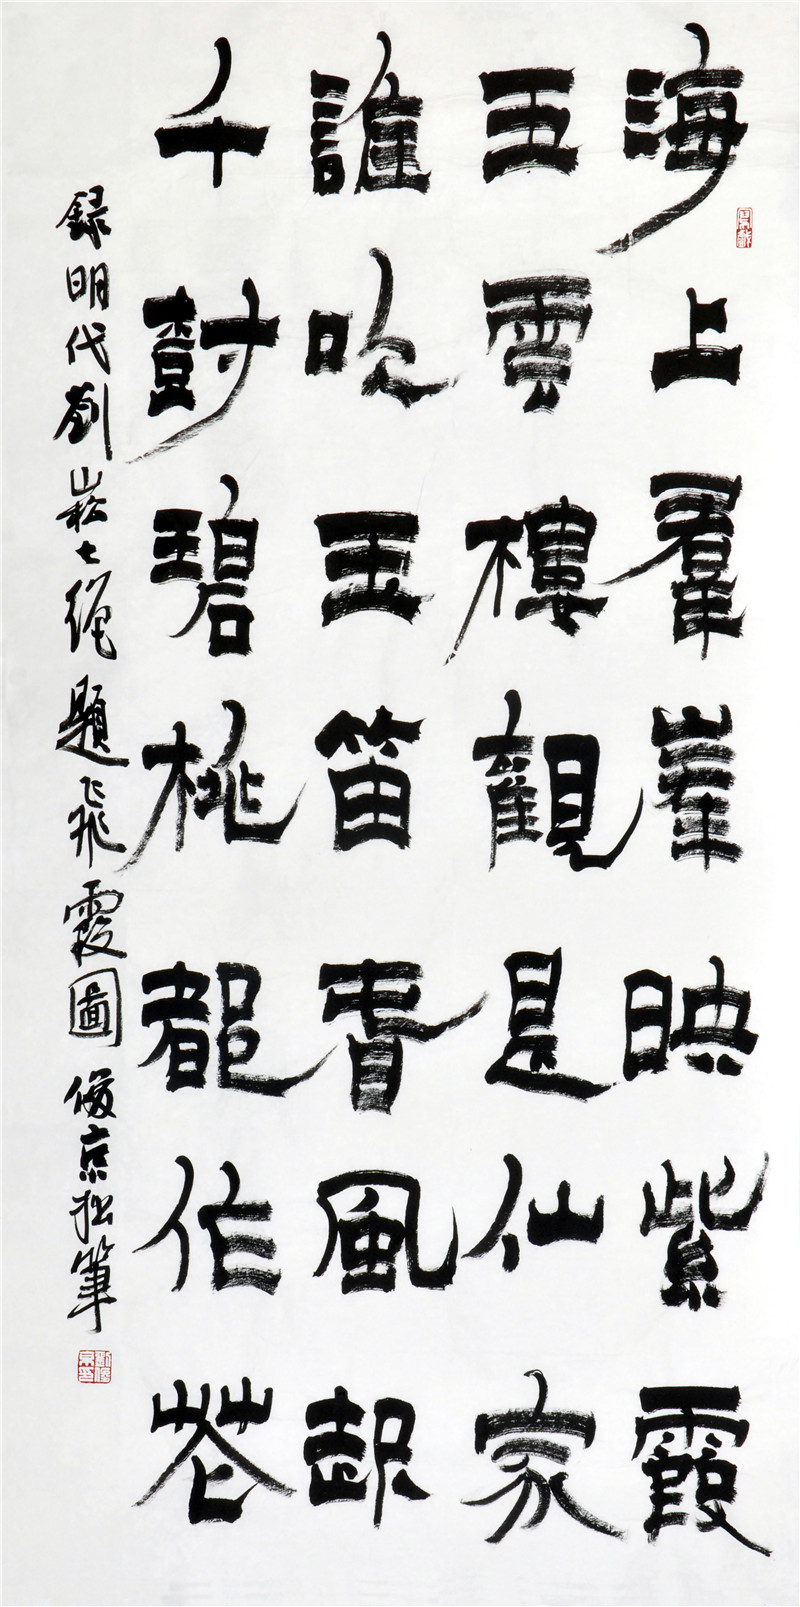 海上羣峯映紫霞
五雲樓觀是仙家
誰吹玉笛香風起
千樹碧桃都作花
録明代劉崧七絶題飛霞圖 俊京拙筆